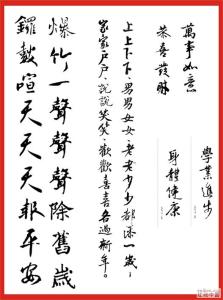 學業進步
身體健康
萬事如意
恭喜發財
上上下下、男男女女、老老少少都添一歲，
家家戶戶、說說笑笑、歡歡喜喜各過新年。
爆竹一聲聲聲除舊歲
鑼鼓喧天天天報平安